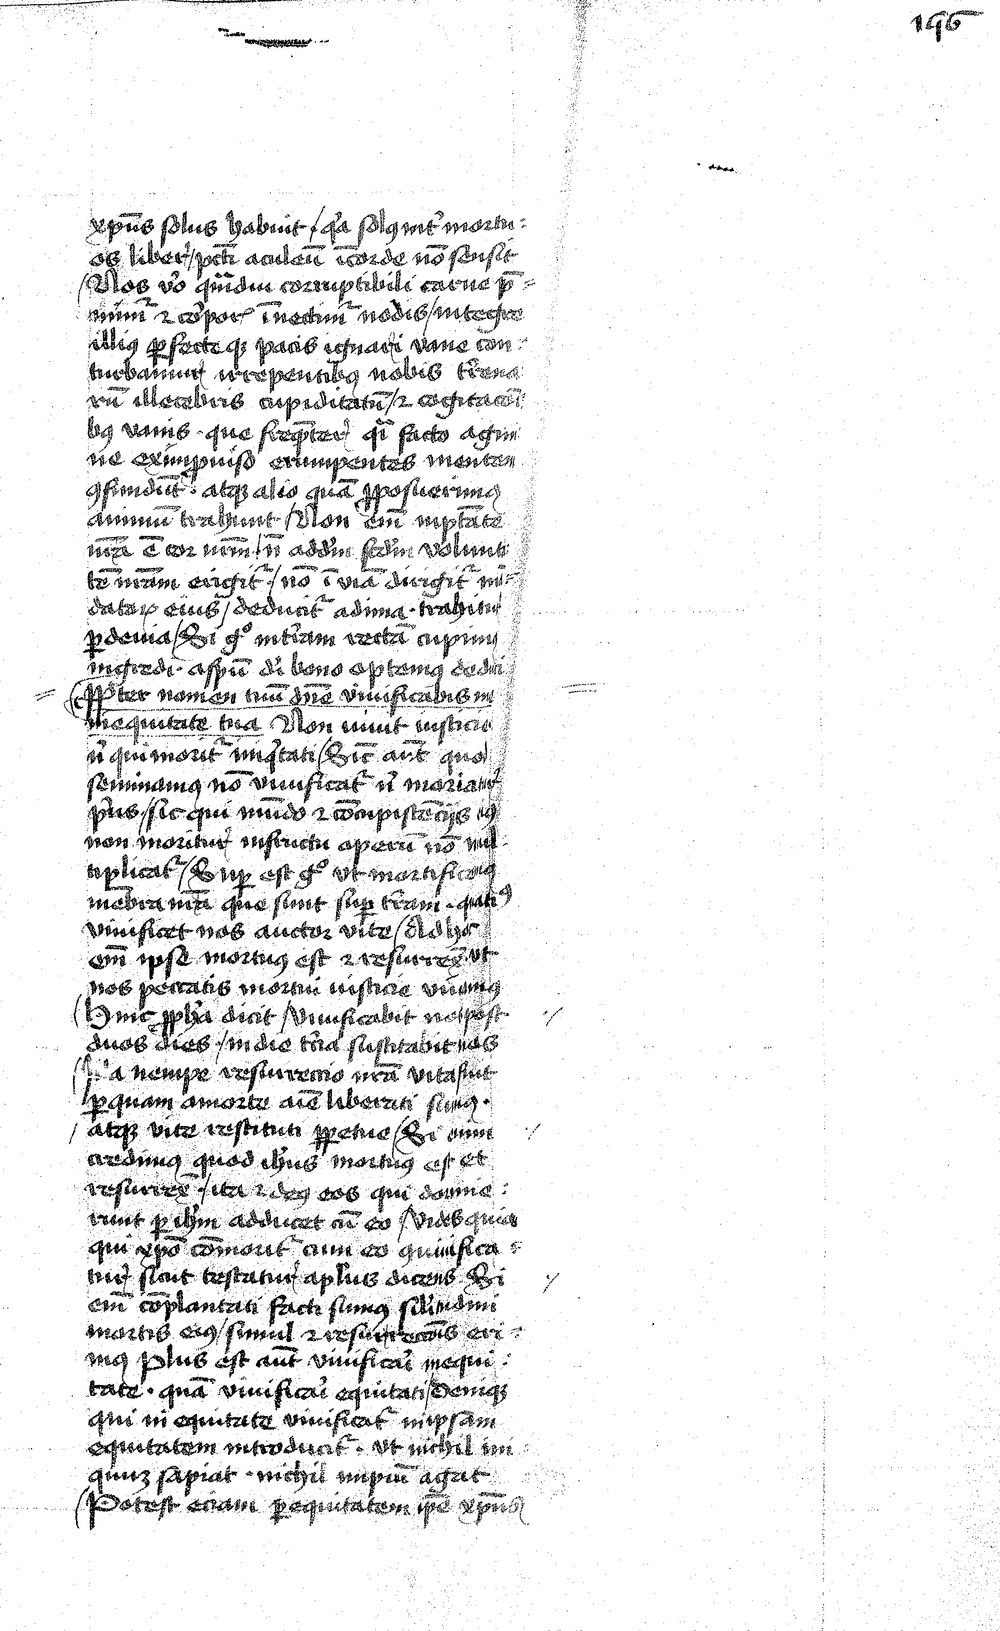 196
xp̄us solus habuit / q̇a solꝰ int̉ mortu:
os liber / pcc̄ti aculeū ī corde nō sensit
/ Nos v̊o quādiu corruptibili carne p̄=
mimur ⁊ corpor̨ īnectimur nodis / integre
illiꝰ ꝑfecteqꝫ pacis ignari vane con:
turbamur irrepentibꝰ nobis t̄rena
rū illecebris cupiditatū / ⁊ cogitacōi
bꝰ vanis · que freq̄nter q̇i facto agmi
ne ex improuiso erumpentes mentem
ꝯfundūt · atqꝫ alio quā ꝓposuerimꝰ
animū trahunt / Non em̄ in ptāte
nr̄a ē cor nr̄m / n̄ ad dūm volunta
tē nr̄am erigitur / nō ī viā dirigitur mā=
datorꝫ eius / deducitur ad ima · trahitur
ꝑ deuia / Si gͦ in t̄ram rectā cupimꝰ
ingredi · a spū dī bono optemꝰ deduci
Ppter nomen tuū dn̄e viuificabis me
in equitate tua Non viuit iusticie
n̄ qui moritur iniq̇tati / Sic aūt quod
seminamꝰ nō viuificatur n̄ moriatur
prius / sic qui mūdo ⁊ concupiscēcijs eiꝰ
non moritur in fructu operū nō mul
tiplicatur / Suꝑ est gͦ ut mortificemꝰ
mēbra nr̄a que sunt suꝑ t̄ram · quatiꝰ
viuificet nos auctor vite / Ad hoc
em̄ ipse mortuꝰ est ⁊ resurrex̄ ut
nos peccatis mortui iusticie viuamꝰ
/ Hinc ꝓph̄a dicit / viuificabit nos post
duos dies / in die t̄cia suscitabit nos
/ nempe resurreccio nr̄a vita fuit
ꝑ quam a morte aīe liberati sumꝰ ·
/ atqꝫ vite restituti ꝑpetue / Si enim
credimꝰ quod ih̄us mortuꝰ est et
resurrex̄ / ita ⁊ deꝰ eos qui dormie:
runt ꝑ ih̄m adducet cū eo / Vides quia
qui xp̄o cōmoritur cum eo ꝯuiuifica:
tur sicut testatur aplūs dicens Si
em̄ cōplantati facti sumꝰ similitudini
mortis eiꝰ / simul ⁊ resurreccōis eri:
mꝰ Plus est aūt viuificari in equi:
tate · quā viuificari equitati / Deniqꝫ
qui in equitate viuificatur in ipsam
equitatem introducitur · ut nichil ini:
quuꝫ sapiat · nichil impiū agat
/ Potest eciam ꝑ equitatem ip̄e xp̄us